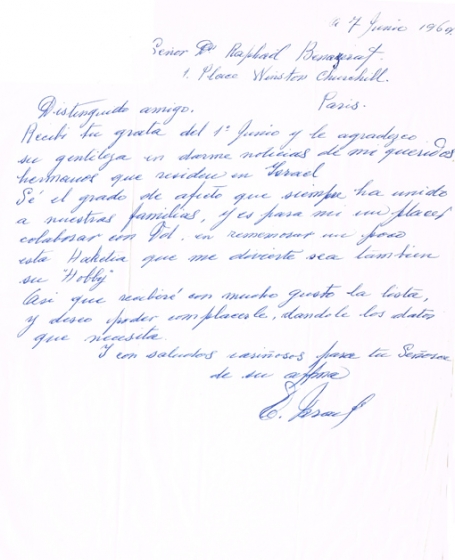 a 7 Junio 1969.
Señor Dr Raphaël
1. Place Winston Churchill.
Paris.
Distinguido amigo.
Recibi tu grata del 1º Junio y le agradezco
su gentileza en darme noticias de mis queridos
hermanos que residen en Israel
Sé el grado de afecto que siempre ha unido
a nuestras familias, y es para mi un placer
colaborar con Vd. en rememorar un poco
esta Haketia que me divierte sea tambien
su "Hobby"
Asi que recibiré con mucho gusto la lista,
y deseo poder complacerle, dandole los datos
que necesita.
Y con saludos cariñosos para tu Señora
de su affma
E. Israel